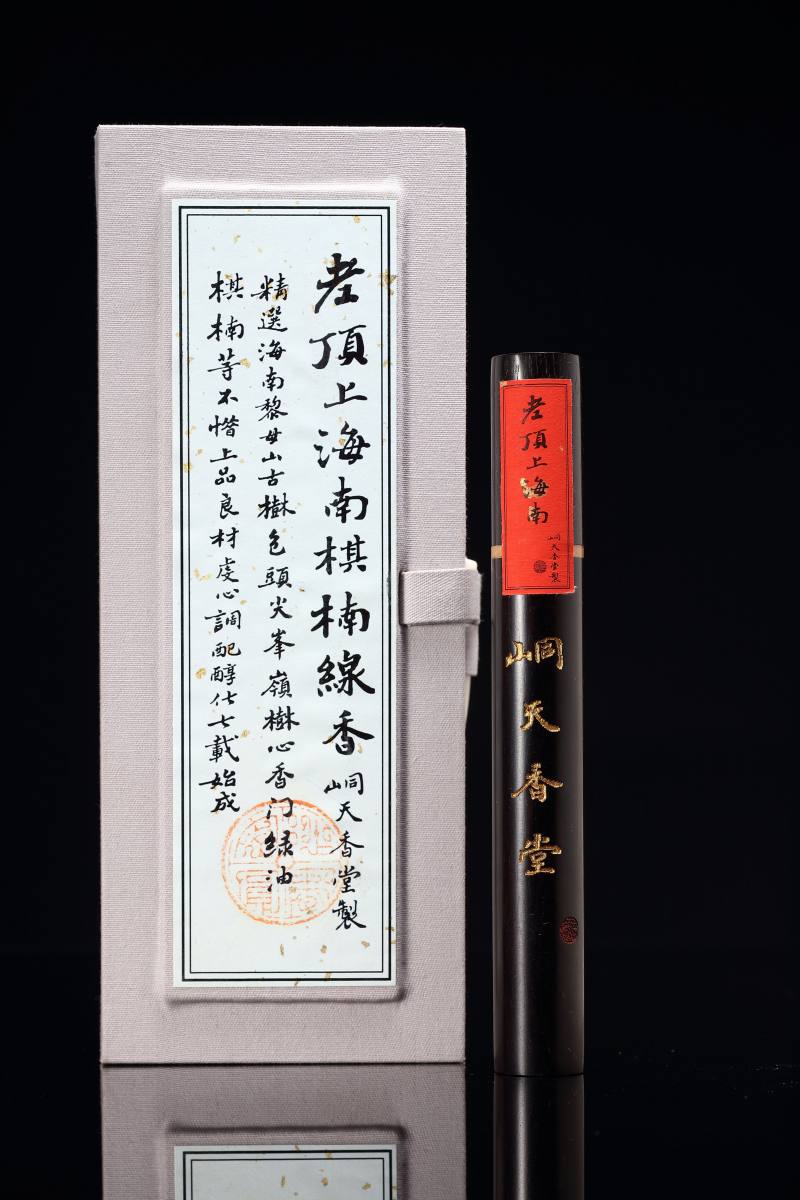 老頂上海南棋楠線香
峒天香堂製
精選海南黎母山古樹包頭尖峯嶺樹心香门緑油
棋楠等不惜上品良材虔心調配醇化七載始成
老頂上海南
峒天香堂製
峒天香堂